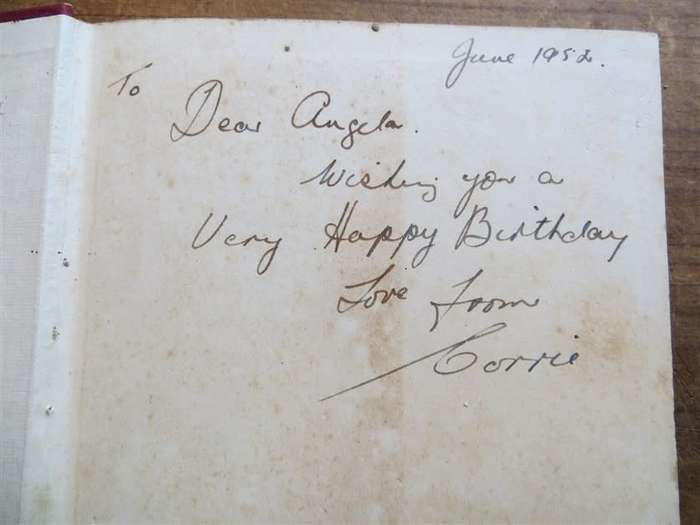 June 1952.
To
Dear Angela.
Wishing you a
Very Happy Birthday
Love from
Corrie